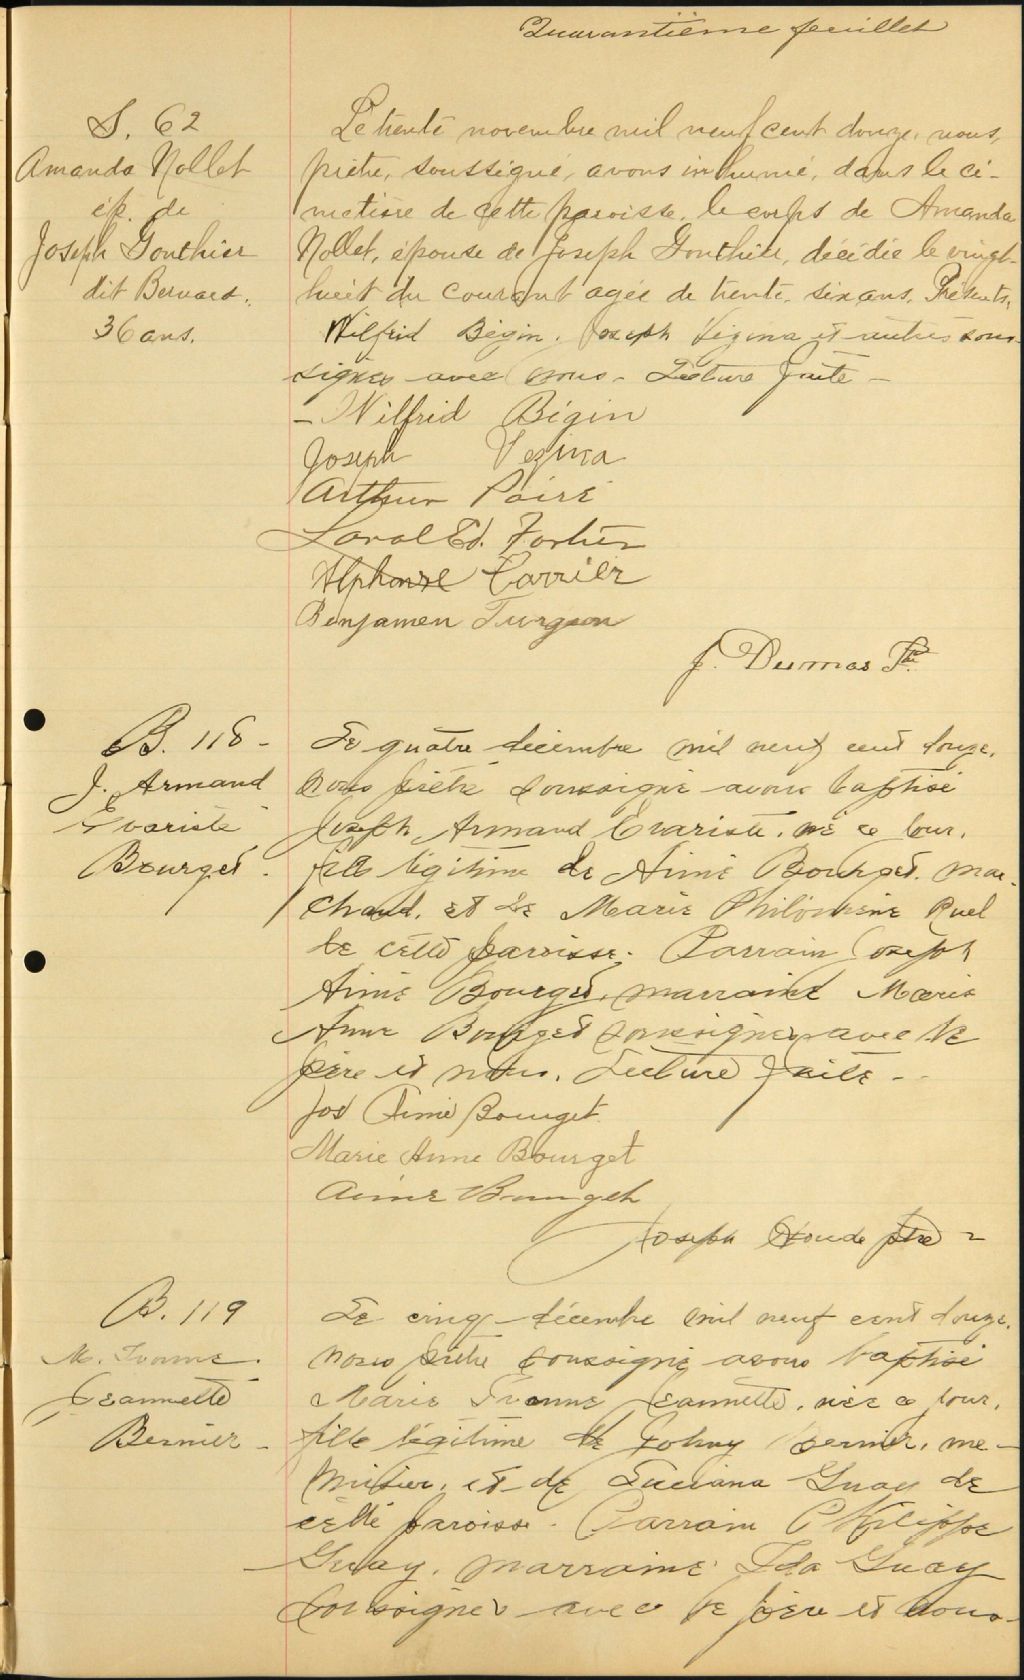 Quarantième feuillet
S. 62
Amanda Nollet
ép. de
Joseph Gonthier
dit Bernard.
36 ans.
Le trente novembre mil neuf cent douze, nous,
prêtre, soussigné, avons inhumé, dans le ci-
metière de cette paroisse, le corps de Amanda
Nollet, épouse de Joseph Gonthier, décédée le vingt-
huit du courant agée de trente-six ans. Présents,
Wilfrid Bégin, Joseph Vézina et autres sous-
signés avec nous - Lecture faite -
- Wilfrid Bégin
Joseph Vezina
Arthur Poiré
Laval Ed. Fortier
Alphonse Carrier
Benjamen Turgeon
J. Dumas Ptre
B. 118 -
J. Armand
Evariste
Bourget.
Le quatre décembre mil neuf cent douze,
nous prêtre soussigné avons baptisé
Joseph Armand Evariste, né ce jour,
fils légitime de Aimé Bourget, mar-
chand, et de Marie Philomène Ruel
de cette paroisse. Parrain Joseph
Aimé Bourget, marraine Marie
Anne Bourget soussignés avec le
père et nous. Lecture faite -
Jos Aimé Bourget
Marie Anne Bourget
Aimé Bourget
Joseph Houde ptre
B. 119
M. Ivonne.
Jeannette
Bernier -
Le cinq décembre mil neuf cent douze,
nous prêtre soussigné avons baptisé
Marie Ivonne Jeannette, née ce jour,
fille légitime de Johny Bernier, me-
nuisier, et de Luciana Guay de
cette paroisse. Parrain Philippe
Guay, marraine Ida Guay
soussignés avec le père et nous -